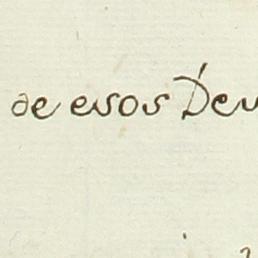 de esos Deu